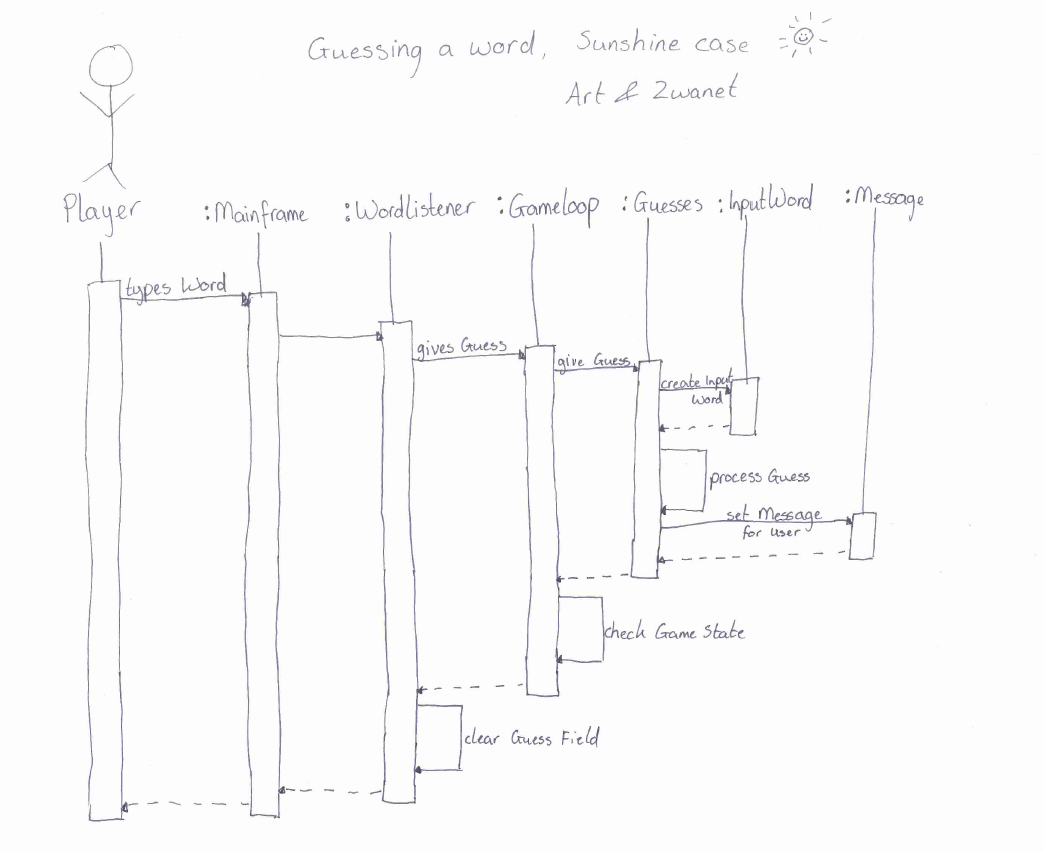 Guessing a word, Sunshine case
Art & Zwanet
Player :Mainframe :Wordlistener :Gameloop :Guesses :InputWord :Message
types Word
gives Guess
give Guess
create Input
Word
process Guess
set Message
for user
check Game State
clear Guess Field